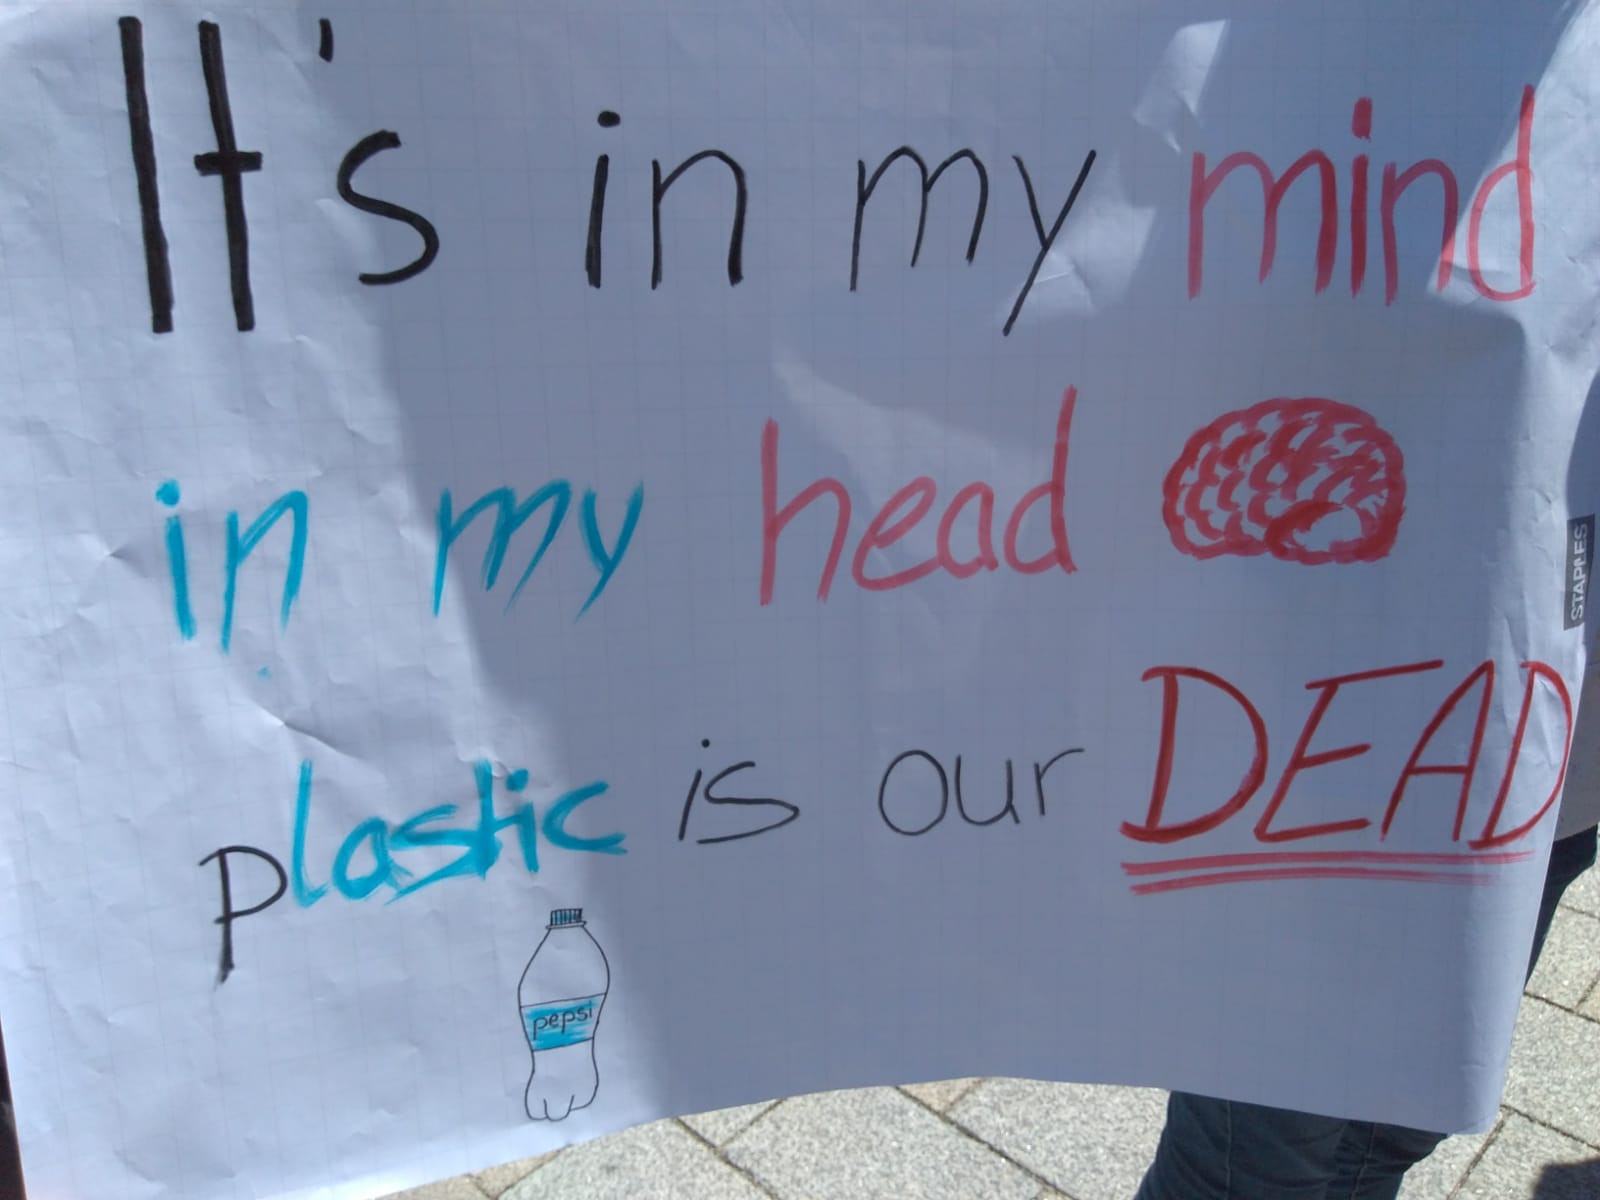 It's in my mind
in my head
plastic is our DEAD
pepsi
STAPLES